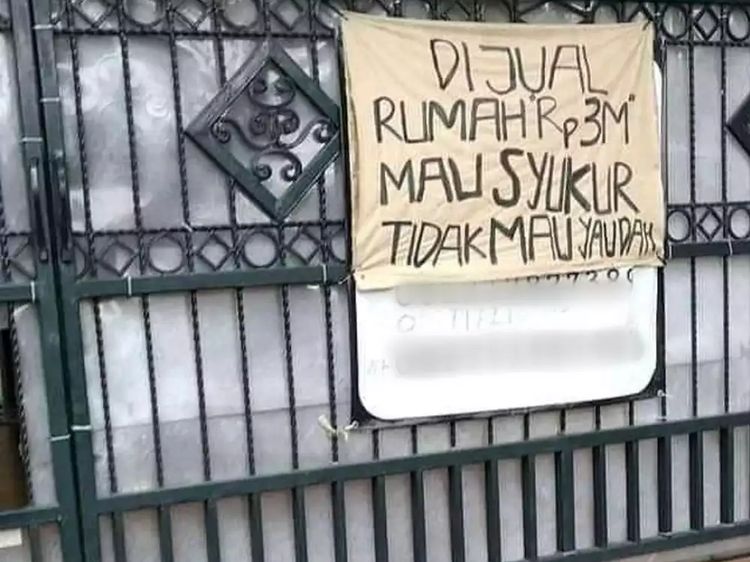 DIJUAL
RUMAH "Rp3M"
MAU SYUKUR
TIDAK MAU YAUDAH